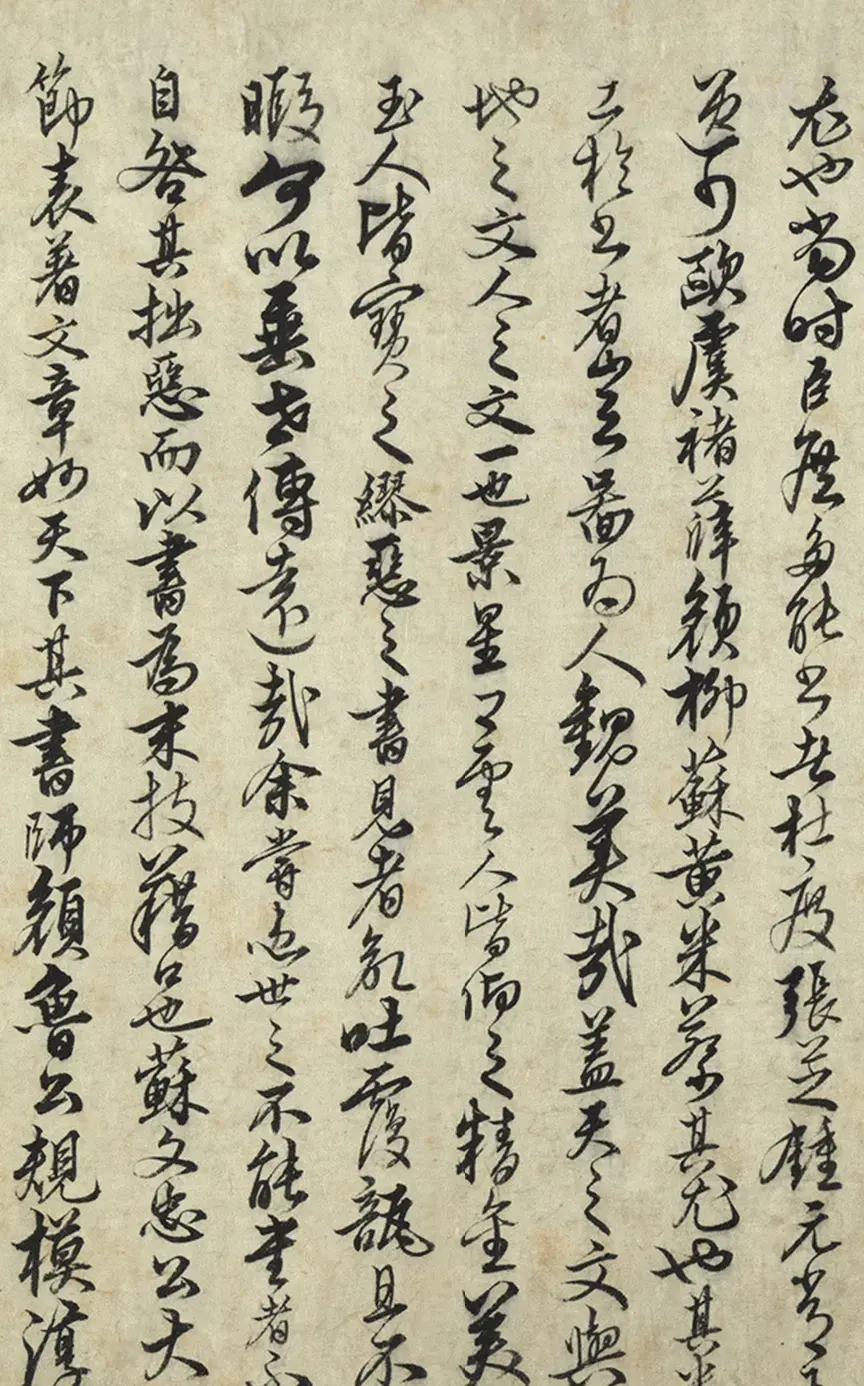 尤也當時臣庶多能書者杜度張芝鍾元常
道可歐虞褚薛顏柳蘇黃米蔡其尤也其
工於書者豈止器為人觀美哉蓋天之文與
地之文人之文一也景星卿雲人皆仰之精金美
玉人皆寶之繆惡之書見者欲吐覆瓿且不
暇何以垂世傳遠哉余嘗恠世之不能書者不
自咎其拙惡而以書為末技藉口也蘇文忠公大
節表著文章妙天下其書師顏魯公規模淳